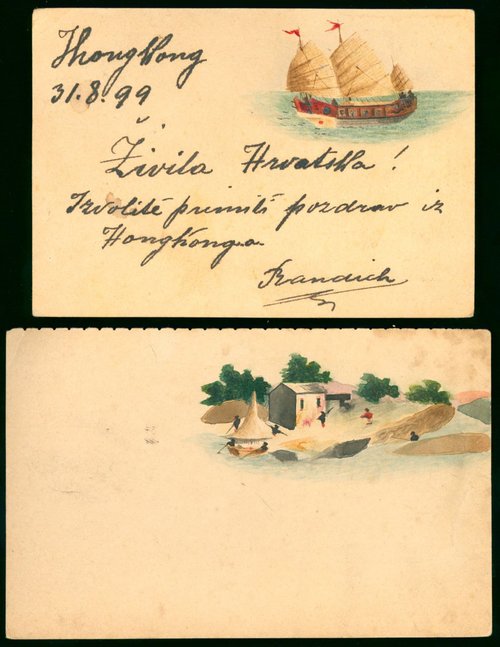 Hhong Kong
31.8.99
Živila Hrvatska!
Izvolite primiti pozdrav iz
HongKonga.
Randich